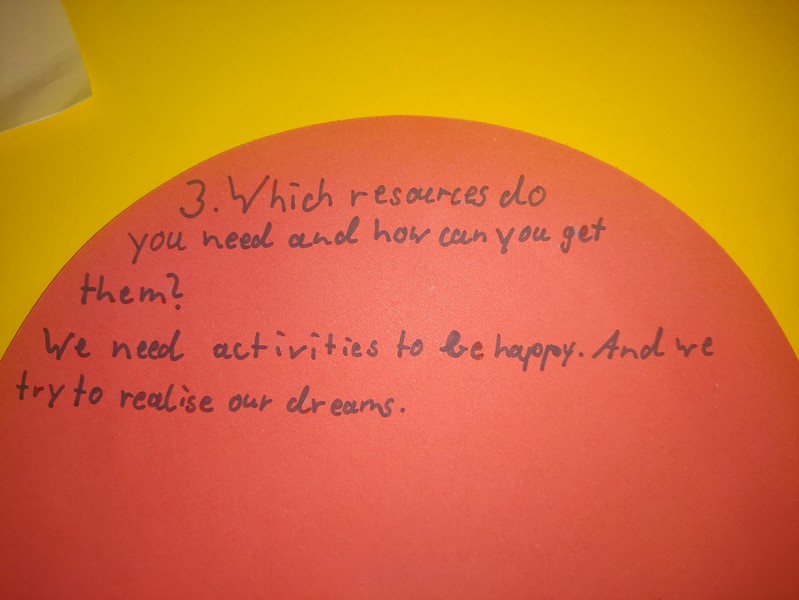 3. Which resources do
you need and how can you get
them?
We need activities to be happy. And we
try to realise our dreams.